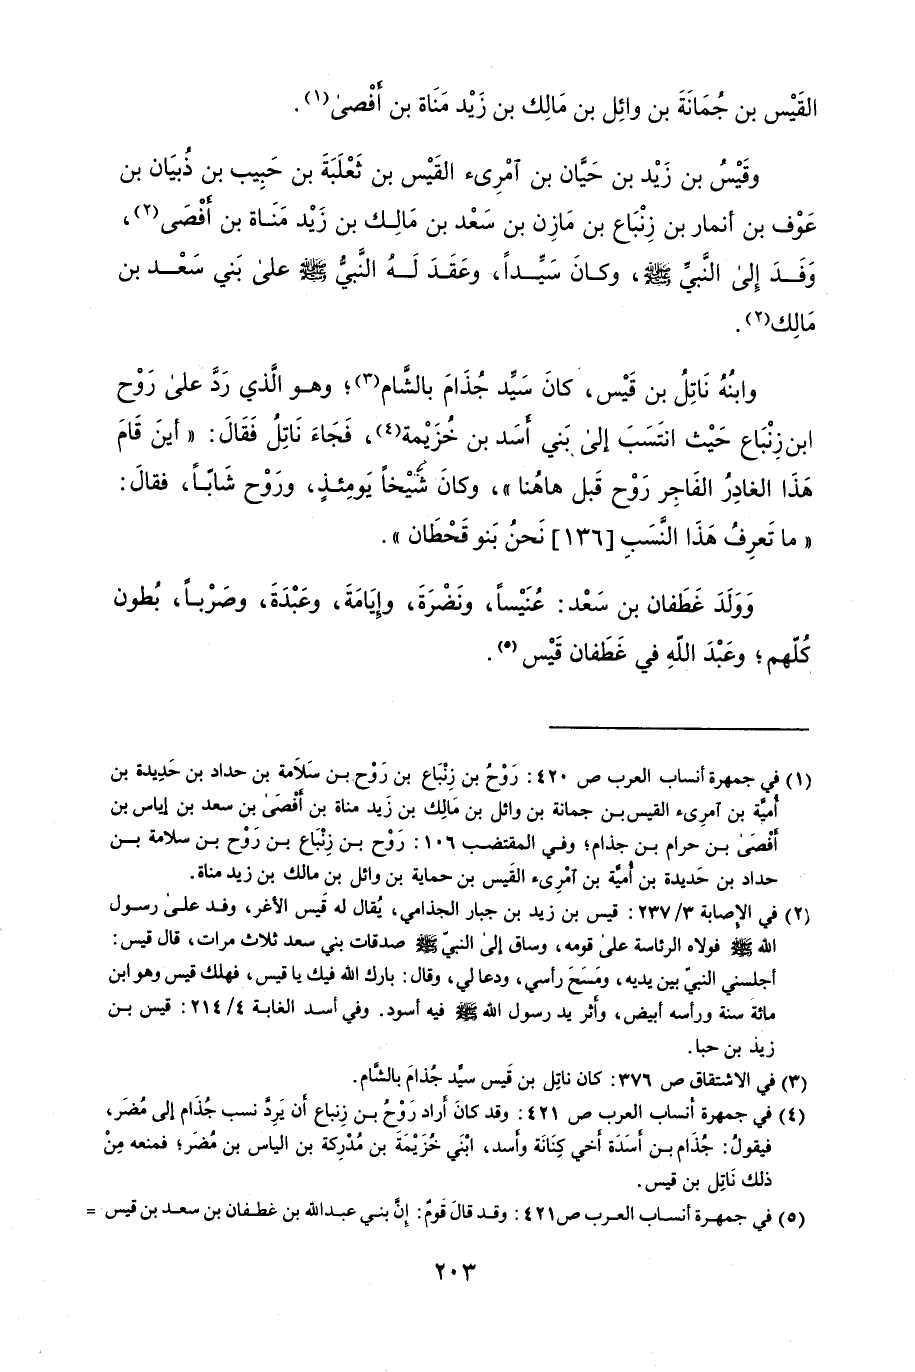 القَيْس بن جُمَانَةَ بن وائِل بن مَالِك بن زَيْد مَنَاة بن أَفْصىٰ(١).
وقَيْسُ بن زَيْد بن حَيَّان بن آمْرِىء القَيْس بن ثَعْلَبَةَ بن حَبِيب بن ذُبيَان بن
عَوْف بن أنمار بن زِنْبَاع بن مَازِن بن سَعْد بن مَالِك بن زَيْد مَنَاة بن أَفْصَى(٢)،
وَفَدَ إِلىٰ النَّبيِّ ﷺ، وكانَ سَيِّداً، وعَقَدَ لَهُ النَّبيُّ ﷺ علىٰ بَني سَعْد بن
مَالِك(٢).
وابنُهُ نَاتِلُ بن قَيْس، كانَ سَيِّد جُذَامَ بالشَّام(٣)؛ وهو الَّذي رَدَّ علىٰ رَوْح
ابن زِنْبَاع حَيْث انتَسَبَ إلىٰ بَني أَسَد بن خُزَيْمة(٤)، فَجَاءَ نَاتِلُ فَقَالَ: « أينَ قَامَ
هَذَا الغادِرُ الفَاجِر رَوْح قبل هاهُنا »، وكانَ شَيْخاً يَومئذٍ، ورَوْح شَابّاً، فقالَ:
« ما تَعرِفُ هَذَا النَّسَبِ [١٣٦] نَحنُ بَنو قَحْطَان ».
وَوَلَدَ غَطَفان بن سَعْد: عُنَيْساً، ونَضْرَةَ، وإِيَامَةَ، وعَبْدَةَ، وصَرْباً، بُطون
كُلّهم؛ وعَبْدَ اللّهِ في غَطَفان قَيْس(٥).
(١) في جمهرة أنساب العرب ص ٤٢٠: رَوْحُ بن زِنْباع بن رَوْح بن سَلَامة بن حداد بن حَدِيدة بن
أُميَّة بن آمرِىء القيس بن جمانة بن وائل بن مَالِك بن زَيد مناة بن أَفْصَىٰ بن سعد بن إياس بن
أَفْصَىٰ بن حرام بن جذام؛ وفي المقتضب ١٠٦: رَوْح بن زِنْبَاع بن رَوْح بن سلامة بن
حداد بن حَديدة بن أُميَّة بن آمْرِىء القَيس بن حماية بن وائل بن مالك بن زيد مناة.
(٢) في الإصابة ٢٣٧/٣: قيس بن زيد بن جبار الجذامي، يُقال له قَيس الأغر، وفد علىٰ رسول
الله ﷺ فولاه الرئاسة علىٰ قومه، وساق إلىٰ النبيّ ﷺ صدقات بني سعد ثلاث مرات، قال قيس:
أجلسني النبيّ بين يديه، ومَسَحَ رأسي، ودعا لي، وقال: بارك الله فيك يا قيس، فهلك قيس وهو ابن
مائة سنة ورأسه أبيض، وأثر يد رسول الله ﷺ فيه أسود. وفي أسد الغابة ٢١٤/٤: قيس بن
زيد بن حبا.
(٣) في الاشتقاق ص ٣٧٦: كان ناتِل بن قَيس سيِّد جُذامَ بالشَّام.
(٤) في جمهرة أنساب العرب ص ٤٢١: وقد كانَ أَراد رَوْحُ بن زِنباع أن يَرِدَّ نسب جُذام إلى مُضَر،
فيقولُ: جُذام بن أَسَدَة أخي كِنَانَة وأسد، ابْنَي خُزَيْمَةَ بن مُدْرِكة بن الياس بن مُضَر؛ فمنعه مِنْ
ذلك نَاتِل بن قيس.
(٥) في جمهرة أنساب العرب ص٤٢١: وقد قالَ قَومٌ: إنَّ بني عبدالله بن غطفان بن سعد بن قيس =
٢٠٣